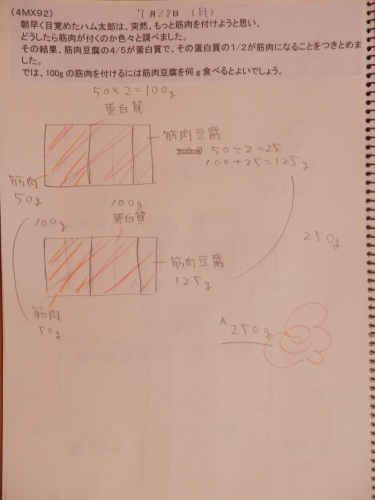 <4MX92>
9月28日(月)
朝早く目覚めたハム太郎は、突然、もっと筋肉を付けようと思い、
どうしたら筋肉が付くのか色々と調べました。
その結果、筋肉豆腐の4/5が蛋白質で、その蛋白質の1/2が筋肉になることをつきとめま
した。
では、100gの筋肉を付けるには筋肉豆腐を何g食べるとよいでしょう。
50×2=100g
蛋白質
筋肉豆腐
50÷2=25
100+25=125g
筋肉
50g
100g
100g
蛋白質
筋肉豆腐
125g
250g
筋肉
50g
A 250g